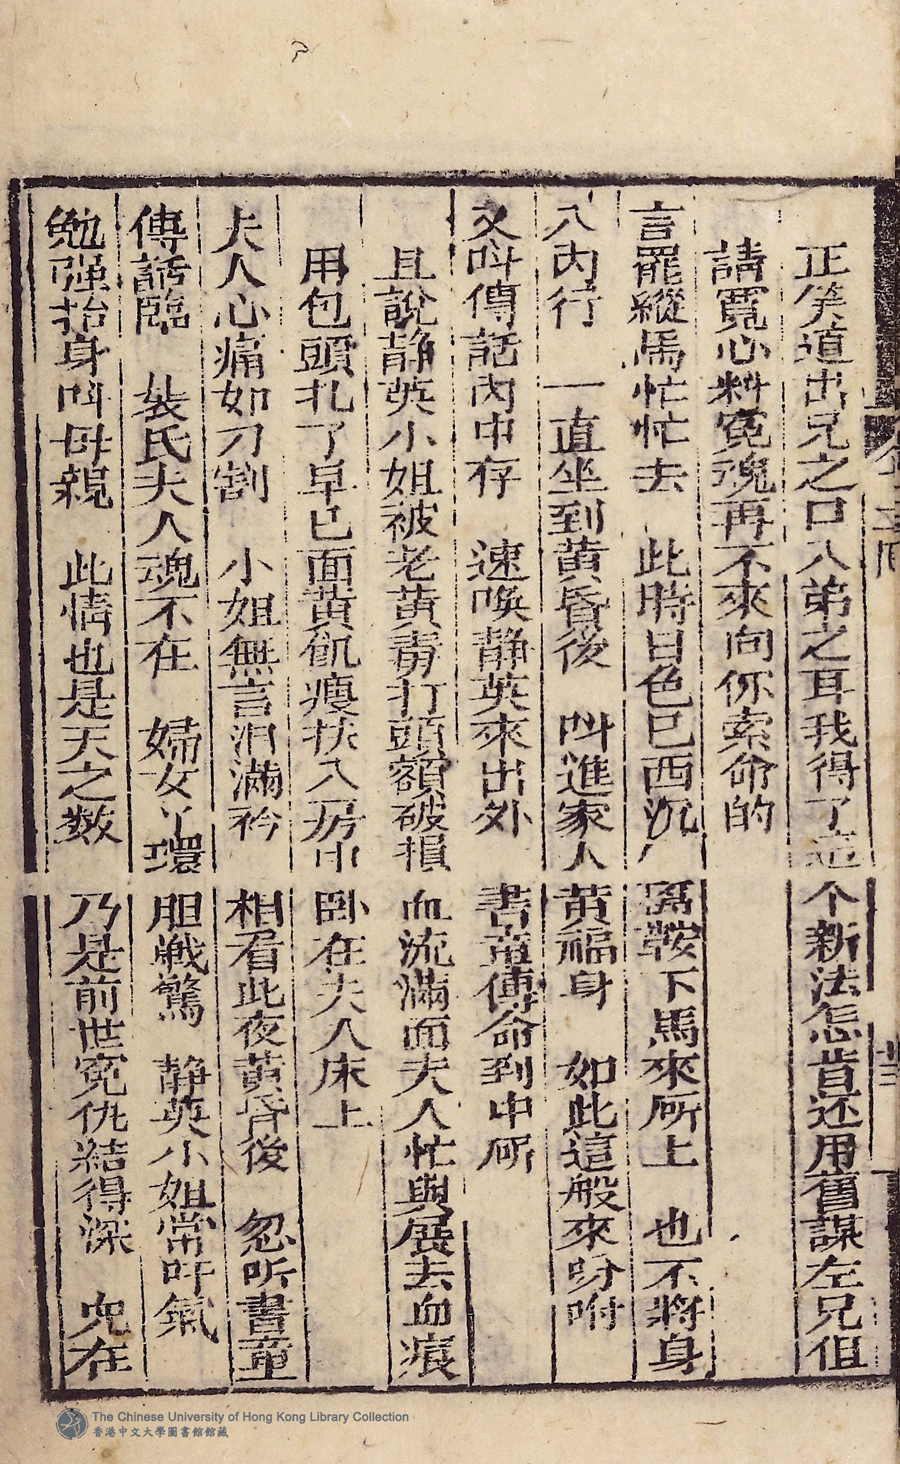 正笑道出兄之口入弟之耳我得了這个新法怎肯还用舊謀左兄但
請寬心料冤魂再不來向你索命的
言罷縱馬忙忙去 此時日色已西沉 鞍下馬來所上 也不將身
入內行 一直坐到黄昏後 叫進家人黄福身 如此這般來吩咐
又叫傳話內中存 速喚静英來出外 書童傳命到中所
且說静英小姐被老黄毒打頭額破損血流滿面夫人忙與展去血痕
用包頭扎了早已面黄飢瘦扶入房中卧在夫人床上
夫人心痛如刀割 小姐無言泪滿衿 相看此夜黄昏後 忽听書童
傳話臨 裴氏夫人魂不在 婦女丫環胆戰驚 静英小姐常吁氣
勉强抬身叫母親 此情也是天之数 乃是前世冤仇結得深 児在
The Chinese University of Hong Kong Library Collection
香港中文大學圖書館館藏